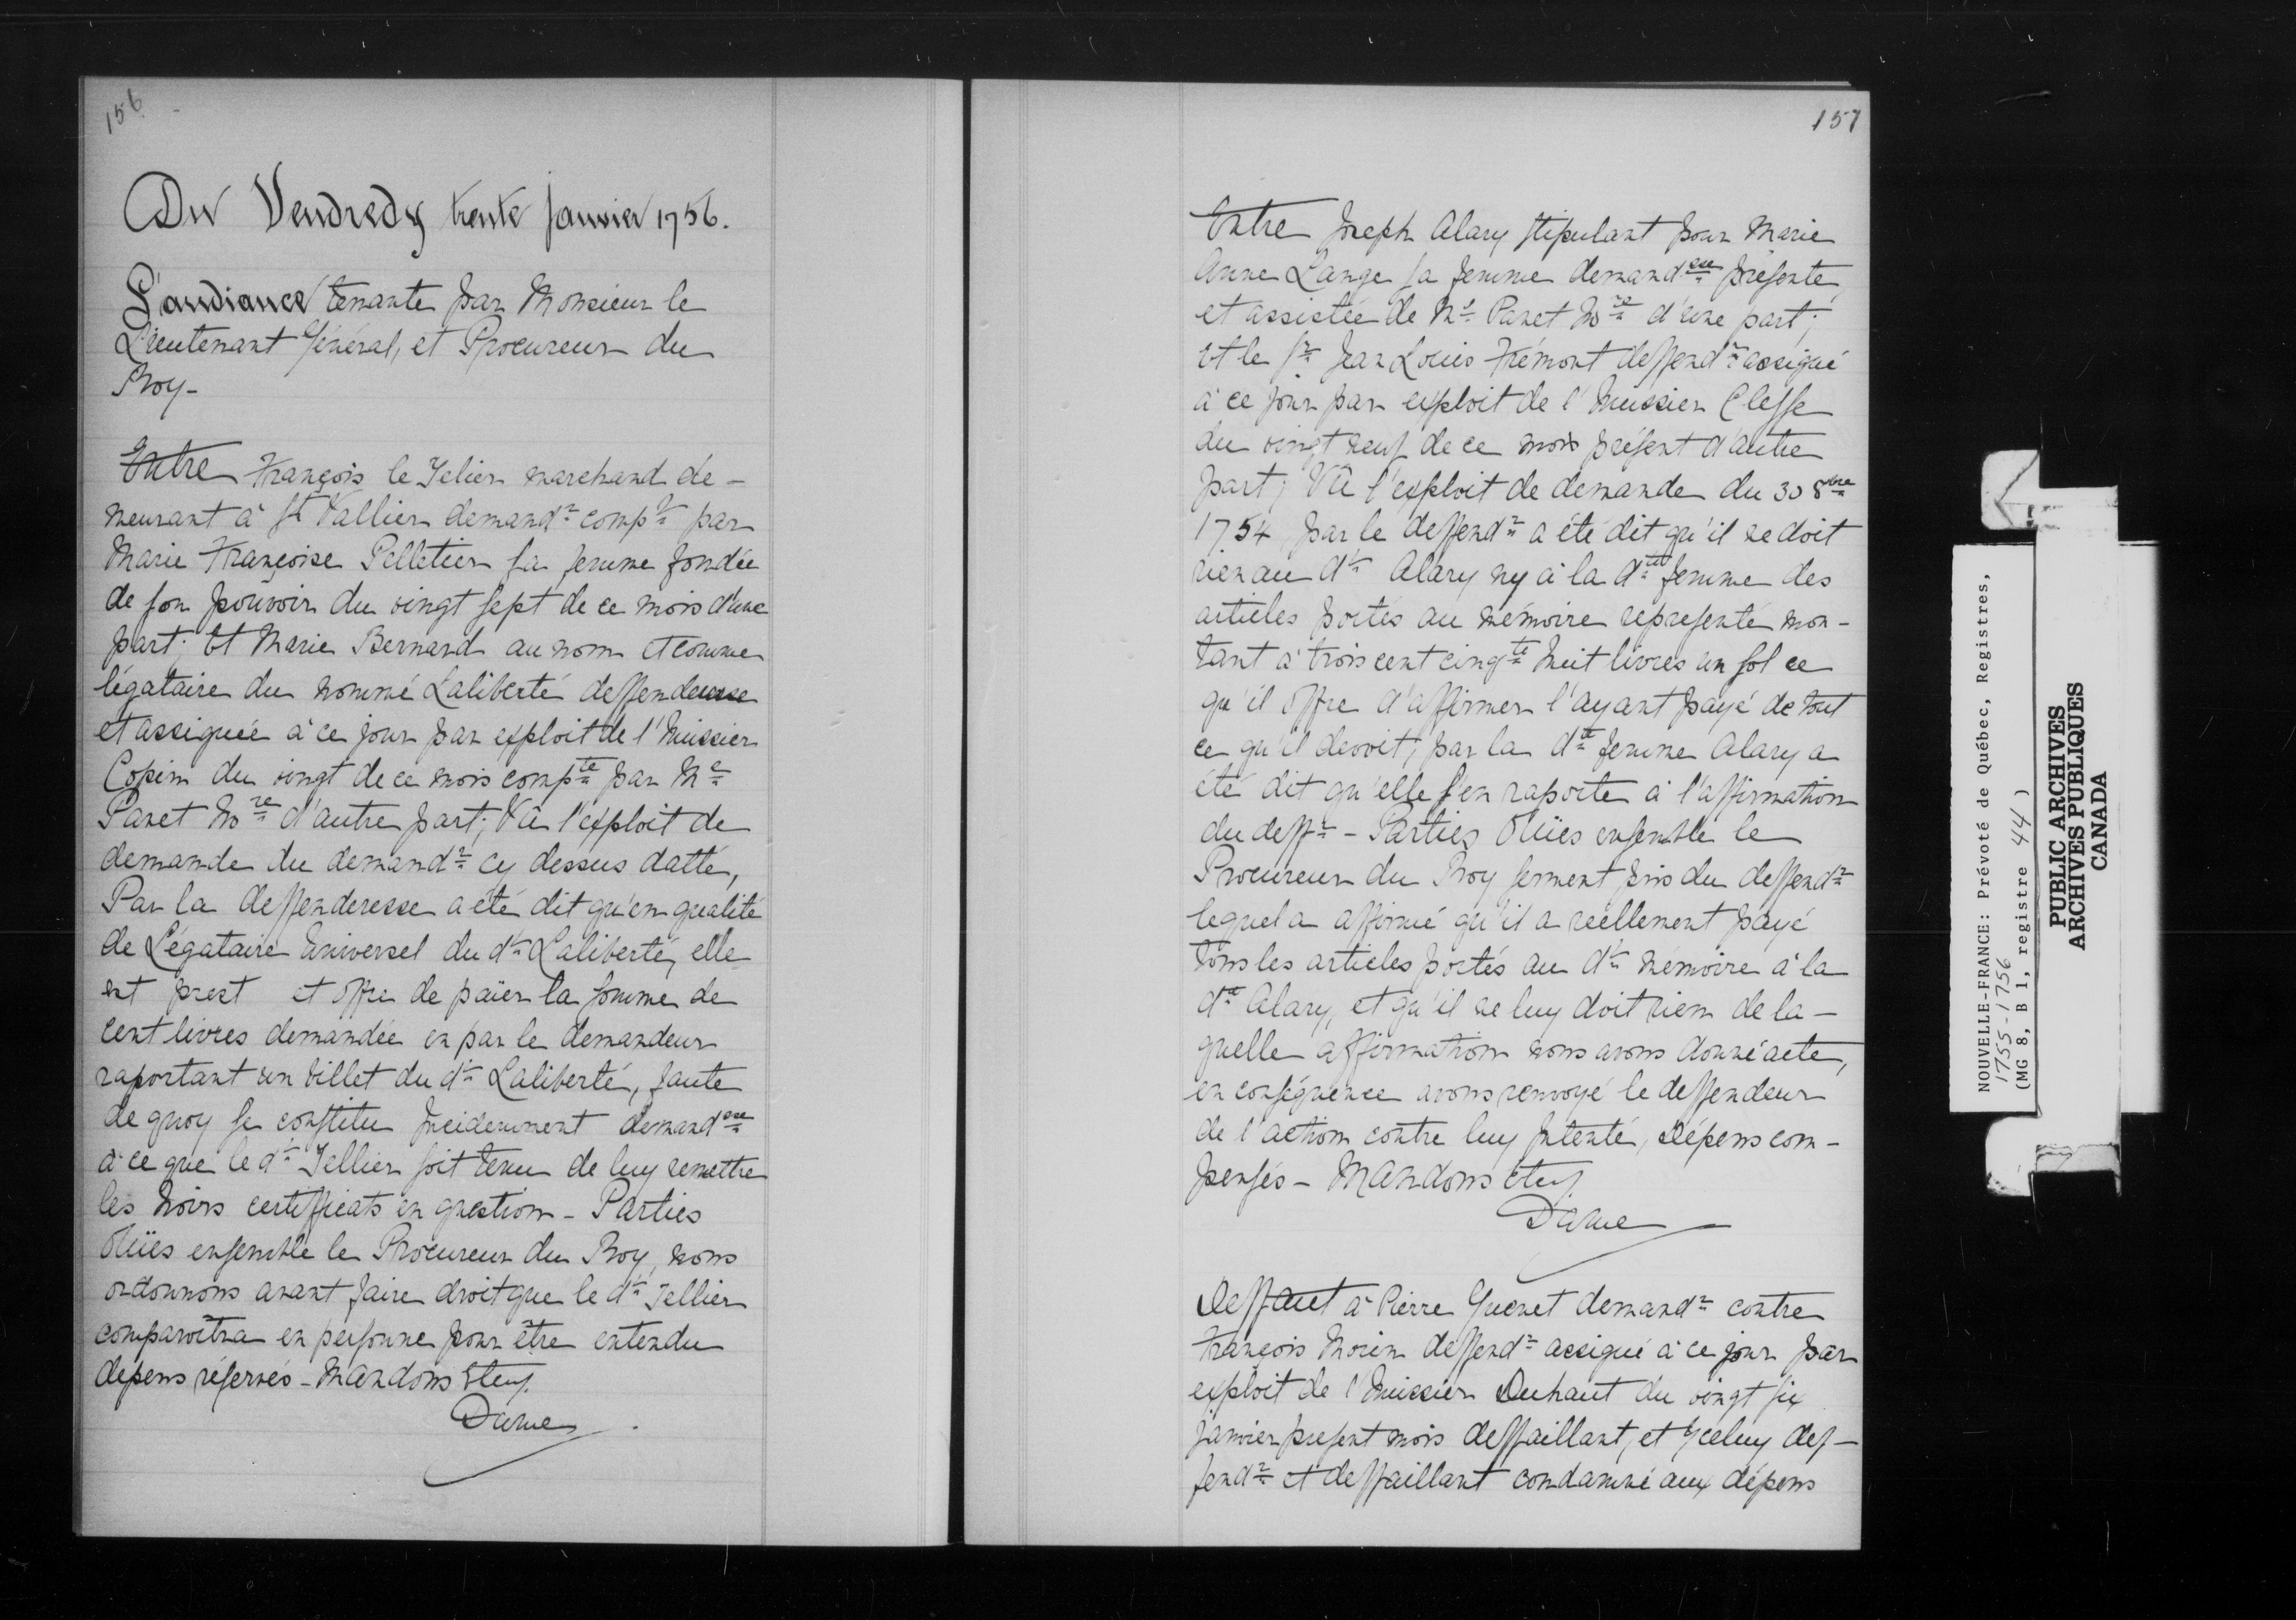 156
Du Vendredy trente janvier 1756.
L'audiance tenante par Monsieur le
Lieutenant Général, et Procureur du
Roy -
Entre François le Telier marchand de-
meurant à St Vallier demandr compt par
Marie Françoise Pelletier sa femme fondée
de son pouvoir du vingt sept de ce mois d'une
part; Et Marie Bernard au nom et comme
légataire du nommé Laliberté deffenderesse
et assignée à ce jour par exploit de l'huissier
Copin du vingt de ce mois compte par Me
Panet Nore d'autre part; Vû l'exploit de
demande du demandr cy dessus datté,
Par la deffenderesse a été dit qu'en qualité
de Légataire Universel du dt Laliberté, elle
est prest et offre de païer la somme de
cent livres demandée en par le demandeur
raportant un billet du dt Laliberté, faute
de quoy se constitue Incidemment demandese
à ce que le dt Tellier soit tenu de luy remettre
les trois certifficats en question - Parties
Oüies ensemble le Procureur du Roy, nous
ordonnons avant faire droit que le dt Tellier
comparoîtra en personne pour être entendu
dépens réservés - Mandons etc.
Daine
157
Entre Joseph Alary stipulant pour Marie
Anne Lange sa femme demandese présente
et assistée de Me Panet Nore d'une part;
Et le sr Jean Louis Frémont deffendr assigné
à ce jour par exploit de l'huissier Clesse
du vingt neuf de ce mois présent d'autre
part; Vû l'exploit de demande du 30 8bre
1754, par le deffendr a été dit qu'il ne doit
rien au dt Alary ny à la dte femme des
articles portés au mémoire représenté mon-
tant à trois cent cinqte huit livres un sol ce
qu'il offre d'affirmer l'ayant payé de tout
ce qu'il devoit; par la dte femme Alary a
été dit qu'elle s'en raporte à l'affirmation
du deffr - Parties Oüies ensemble le
Procureur du Roy serment pris du deffendr
lequel a affirmé qu'il a réellement payé
tous les articles portés au dt mémoire à la
dte Alary, et qu'il ne luy doit rien de la-
quelle affirmation nous avons donné acte,
en conséquence avons renvoyé le deffendeur
de l'action contre luy Intenté, Dépens com-
pensés - Mandons etc.
Daine
Deffaut à Pierre Guenet demandr contre
François Morin deffendr assigné à ce jour par
exploit de l'huissier Duhaut du vingt six
janvier présent mois deffaillant, et Yceluy def-
fendr et deffaillant condamné aux dépens
NOUVELLE-FRANCE: Prévoté de Québec, Registres,
1755-1756
(MG 8, B 1, registre 44)
PUBLIC ARCHIVES
ARCHIVES PUBLIQUES
CANADA